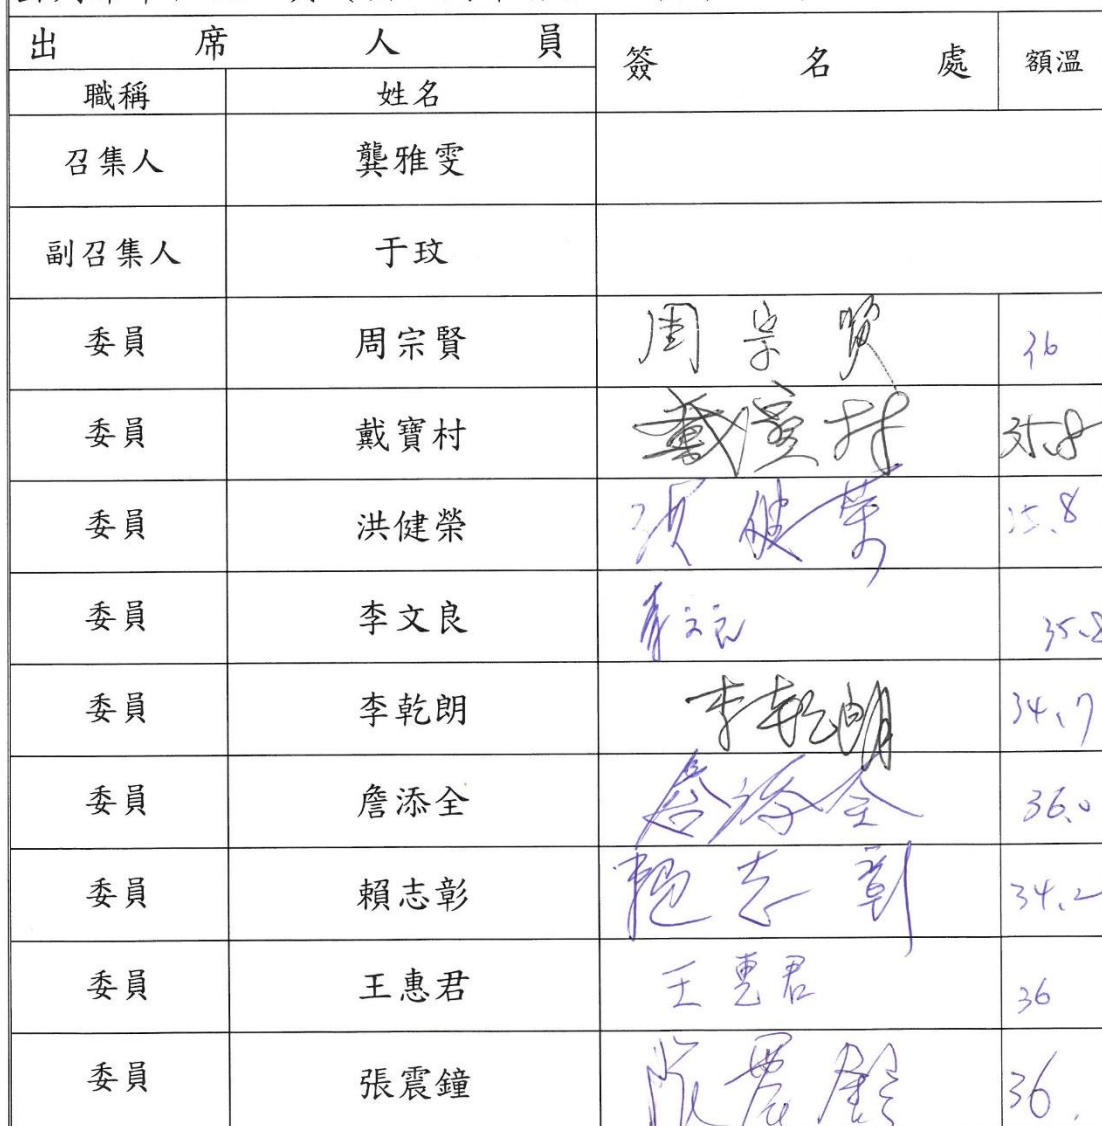 出席人員 簽名處 額溫
職稱 姓名
召集人 龔雅雯
副召集人 于玟
委員 周宗賢 周宗賢 36
委員 戴寶村 戴寶村 35.8
委員 洪健榮 洪健榮 35.8
委員 李文良 李文良 35.8
委員 李乾朗 李乾朗 34.7
委員 詹添全 詹添全 36.0
委員 賴志彰 賴志彰 34.2
委員 王惠君 王惠君 36
委員 張震鐘 張震鐘 36.